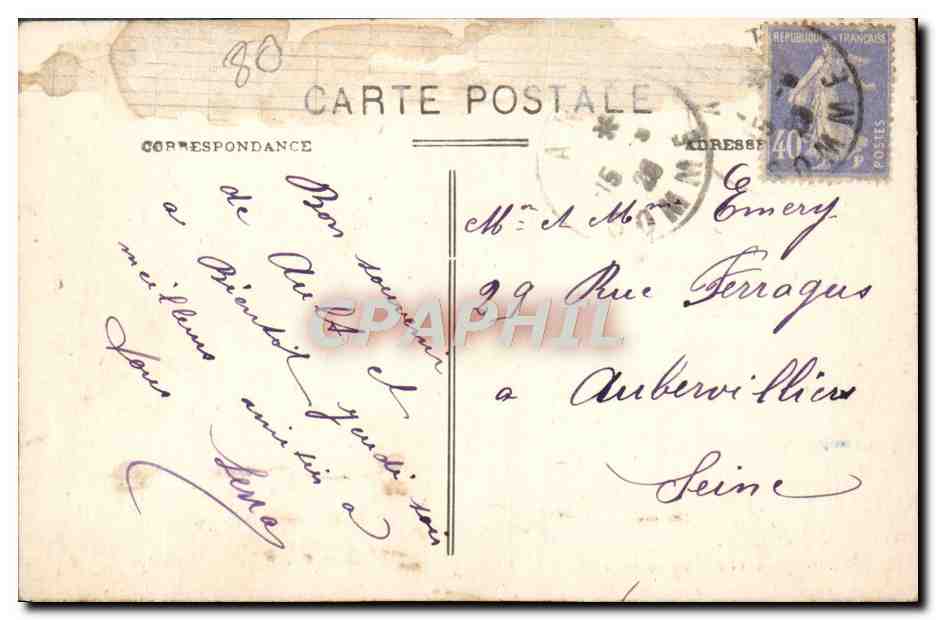 80
CARTE POSTALE
CORRESPONDANCE
ADRESSE
REPUBLIQUE FRANÇAISE
40
POSTES
SOMME
15
28
Bon souvenir
de Ault et
a Bientot jeudi soir
meilleurs amitiés a
tous
Serra
Mr et Mme Emery
29 Rue Ferragus
a Aubervilliers
Seine
CPAPHIL